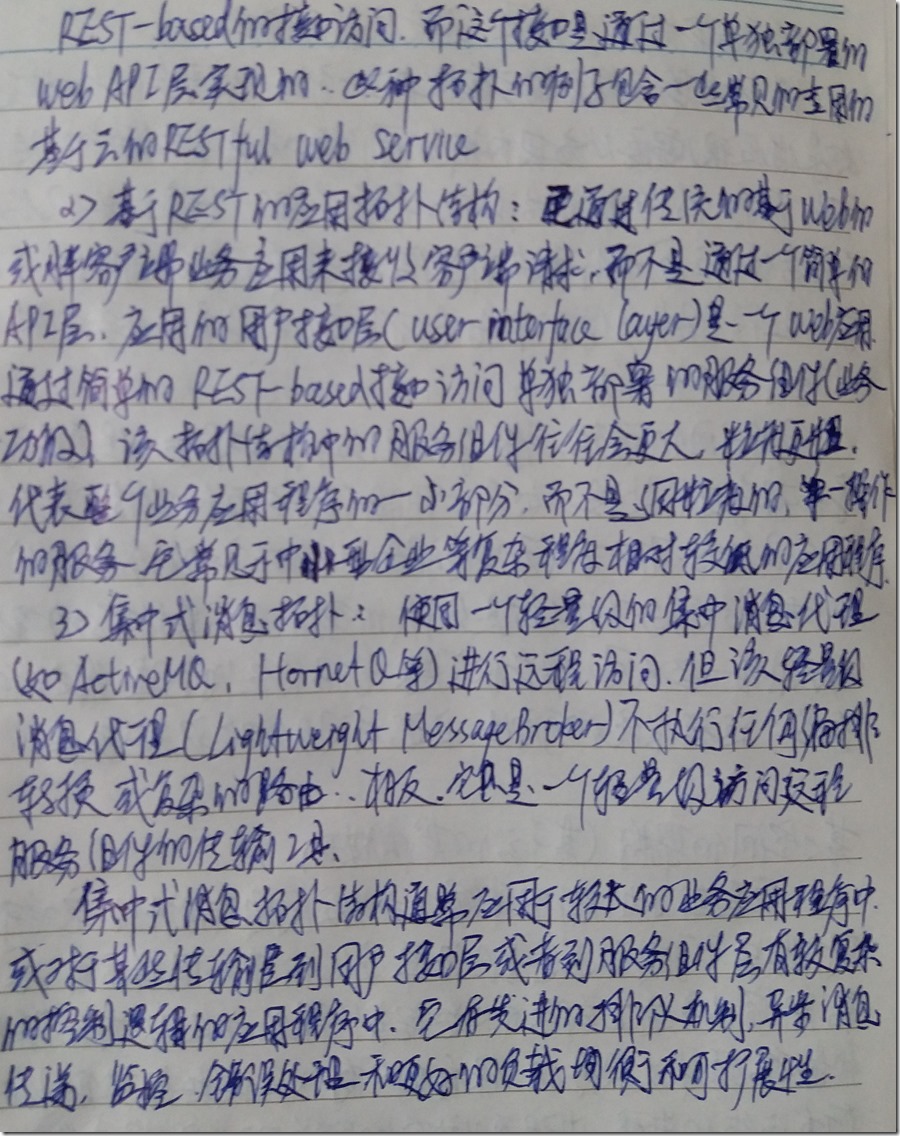 REST-based的接口访问.而这个接口是通过一个单独部署的
web API层实现的.这种拓扑的例子包含一些常见的专用的
基于云的RESTful web service
2)基于REST的应用拓扑结构:它通过传统的基于web的
或胖客户端业务应用来接收客户端请求,而不是通过一个简单的
API层.应用的用户接口层(user interface layer)是一个web应用.
通过简单的REST-based接口访问单独部署的服务组件(业务
功能).该拓扑结构中的服务组件往往会更大,粒度更粗.
代表整个业务应用程序的一小部分,而不是细粒度的,单一操作
的服务.它常见于中小型企业等复杂程度相对较低的应用程序.
3)集中式消息拓扑:使用一个轻量级的集中消息代理
(如ActiveMQ,HornetQ等)进行远程访问.但该轻量级
消息代理(Lightweight Message Broker)不执行任何编排
转换或复杂的路由..相反.它只是一个轻量级访问远程
服务组件的传输工具.
集中式消息拓扑结构通常应用于较大的业务应用程序中.
或对于某些传输层到用户接口层或者到服务组件层有较复杂
的控制逻辑的应用程序中.它有先进的排队机制,异步消息
传递,监控.错误处理和更好的负载均衡和可扩展性.